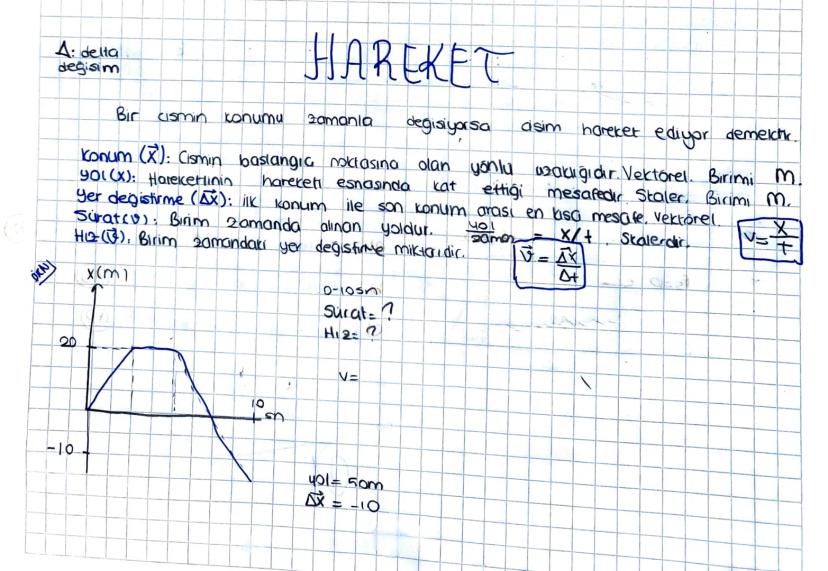 HAREKET
Δ: delta
değişim
Bir cismin konumu zamanla değişiyorsa cisim hareket ediyor demektir.
Konum (X⃗): Cismin başlangıç noktasına olan yönlü uzaklığıdır. Vektörel. Birimi m.
yol (x): Hareketlinin hareketi esnasında kat ettiği mesafedir. Skaler. Birimi m.
Yer değiştirme (ΔX⃗): ilk konum ile son konum arası en kısa mesafe. Vektörel.
Sürat (v): Birim zamanda alınan yoldur. yol/zaman = x/t. Skalerdir. v = x/t
Hız (v⃗): Birim zamandaki yer değiştirme miktarıdır. v⃗ = ΔX⃗/Δt
ÖRN/
x(m)
0-10sn
Sürat = ?
Hız = ?
20
v =
10
sn
-10
yol = 50m
ΔX⃗ = -10